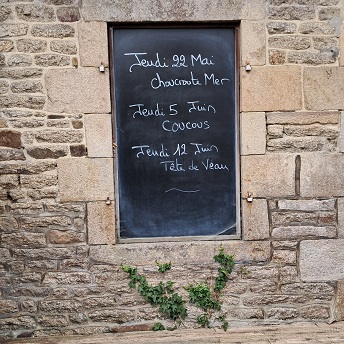 Jeudi 22 Mai
choucroute Mer
Jeudi 5 Juin
Coucous
Jeudi 12 Juin
Tête de Veau